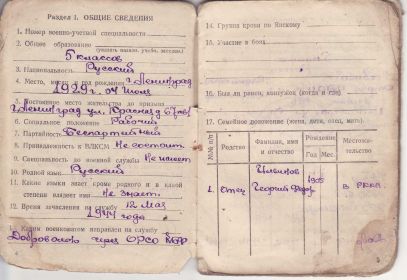 Раздел I. ОБЩИЕ СВЕДЕНИЯ
1. Номер военно-учетной специальности
2. Общее образование
5 классов
3. Национальность Русский
4. Место, и год рождения г. Ленинград
1929 г. 04 июня
5. Постоянное место жительства до призыва
г. Ленинград ул.
6. Социальное положение Рабочий
7. Партийность Беспартийный
8. Принадлежность к ВЛКСМ Не состоит
9. Специальность до военной службы Не имеет
10. Родной язык Русский
11. Какие языки знает кроме родного и в какой
степени владеет ими Не знает
12. Время зачисления на службу 12 мая
1944 года
13. Каким военкоматом направлен на службу
Добровольно через ОРСО
4
14. Группа крови по Янскому
15. Участие в боях
16. Был ли ранен, контужен (когда и где)
17. Семейное положение (жена, дети, отец, мать).
№№ п/п
Родство
Фамилия, имя и отчество
Рождение
Год
Мес.
Местожительство
1. Отец
Георгий Федор
1905
в РККА
5